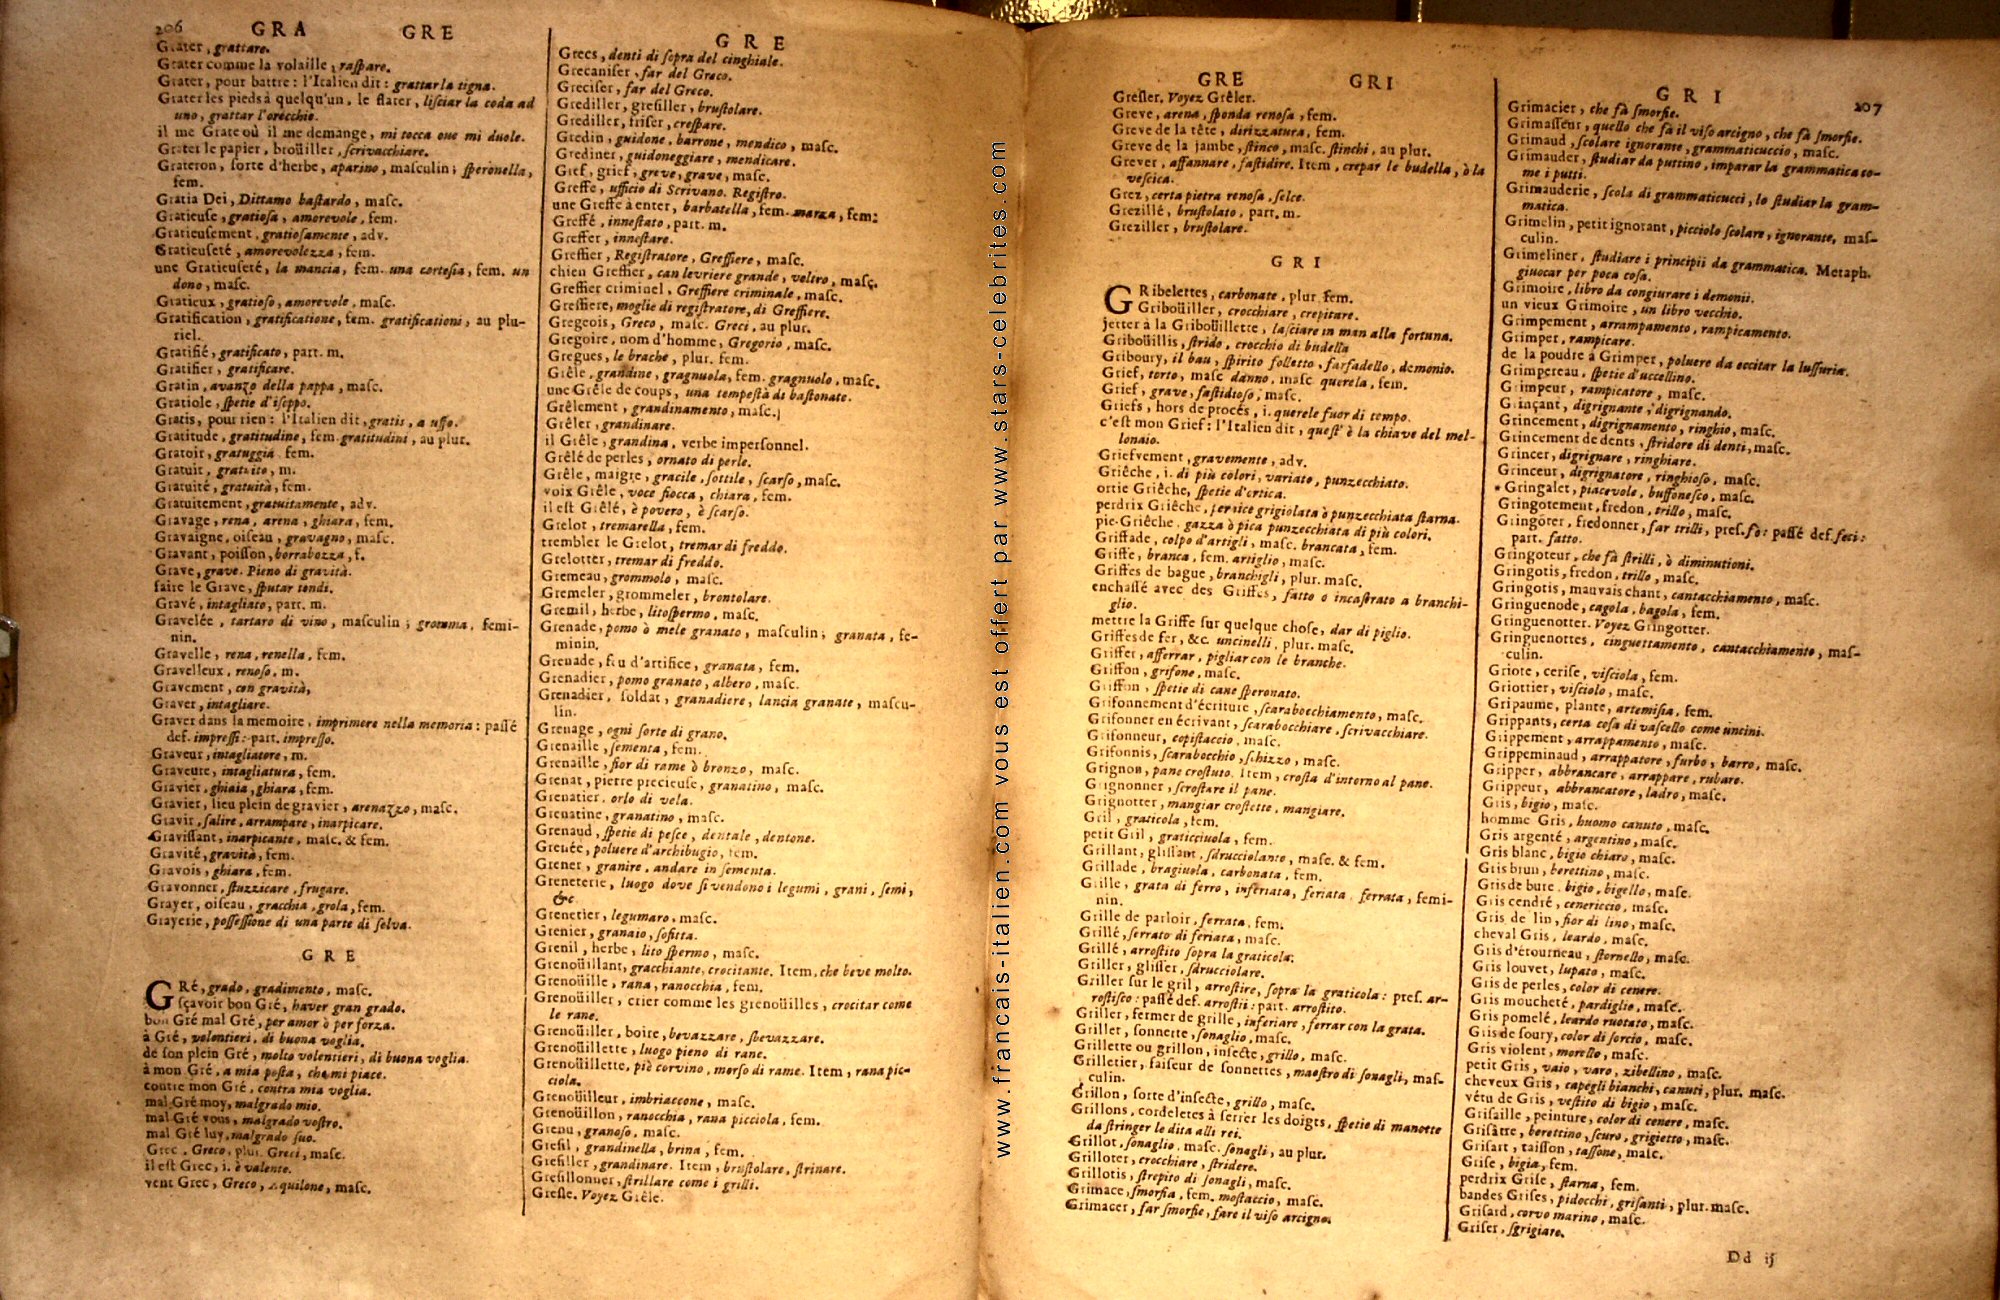 206 GRA GRE
Grater, grattare.
Grater comme la volaille, raſpare.
Grater, pour battre: l'Italien dit: grattar la tigna.
Grater les pieds à quelqu'un, le flater, liſciar la coda ad
uno, grattar l'orecchio.
il me Grate où il me demange, mi tocca oue mi duole.
Grater le papier, broüiller, ſcrivacchiare.
Grateron, ſorte d'herbe, aparino, maſculin; ſperonella,
fem.
Gratia Dei, Dittamo baſtardo, maſc.
Gratieuſe, gratioſa, amorevole, fem.
Gratieuſement, gratioſamente, adv.
Gratieuſeté, amorevolezza, fem.
une Gratieuſeté, la mancia, fem. una corteſia, fem. un
dono, maſc.
Gratieux, gratioſo, amorevole, maſc.
Gratification, gratificatione, fem. gratificationi, au plu-
riel.
Gratifié, gratificato, part. m.
Gratifier, gratificare.
Gratin, avanzo della pappa, maſc.
Gratiole, ſpetie d'iſeppo.
Gratis, pour rien: l'Italien dit, gratis, a uffo.
Gratitude, gratitudine, fem. gratitudini, au plur.
Gratoir, gratuggia. fem.
Gratuit, gratuito, m.
Gratuité, gratuità, fem.
Gratuitement, gratuitamente, adv.
Gravage, rena, arena, ghiara, fem.
Gravaigne, oiſeau, gravagno, maſc.
Gravant, poiſſon, borrabozza, f.
Grave, grave. Pieno di gravità.
faire le Grave, ſputar tondi.
Gravé, intagliato, part. m.
Gravelée, tartaro di vino, maſculin; gromma, femi-
nin.
Gravelle, rena, renella, fem.
Gravelleux, renoſo, m.
Gravement, con gravità,
Graver, intagliare.
Graver dans la memoire, imprimere nella memoria: paſſé
def. impreſſi: part. impreſſo.
Graveur, intagliatore, m.
Graveure, intagliatura, fem.
Gravier, ghiaia, ghiara, fem.
Gravier, lieu plein de gravier, arenazzo, maſc.
Gravir, ſalire, arrampare, inarpicare.
Graviſſant, inarpicante, maſc. & fem.
Gravité, gravità, fem.
Gravois, ghiara, fem.
Gravonner, ſtuzzicare, frugare.
Grayer, oiſeau, gracchia, grola, fem.
Grayerie, poſſeſſione di una parte di ſelva.
GRE
GRé, grado, gradimento, maſc.
ſçavoir bon Gré, haver gran grado.
bon Gré mal Gré, per amor ò per forza.
à Gré, volontieri, di buona voglia.
de ſon plein Gré, molto volentieri, di buona voglia.
à mon Gré, a mia poſta, che mi piace.
contre mon Gré, contra mia voglia.
mal Gré moy, malgrado mio.
mal Gré vous, malgrado voſtro.
mal Gré luy, malgrado ſuo.
Grec, Greco, plur. Greci, maſc.
il eſt Grec, i. è valente.
vent Grec, Greco, Aquilone, maſc.
GRE
Grees, denti di ſopra del cinghiale.
Grecaniſer, far del Greco.
Greciſer, far del Greco.
Grediller, greſiller, bruſtolare.
Grediller, friſer, creſpare.
Gredin, guidone, barrone, mendico, maſc.
Grediner, guidoneggiare, mendicare.
Gref, grief, greve, grave, maſc.
Greffe, ufficio di Scrivano. Regiſtro.
une Greffe à enter, barbatella, fem. marza, fem;
Greffé, inneſtato, part. m.
Greffer, inneſtare.
Greffier, Regiſtratore, Greffiere, maſc.
chien Greffier, can levriere grande, veltro, maſc.
Greffier criminel, Greffiere criminale, maſc.
Greffiere, moglie di regiſtratore, di Greffiere.
Gregeois, Greco, maſc. Greci, au plur.
Gregoire, nom d'homme, Gregorio, maſc.
Gregues, le brache, plur. fem.
Grêle, grandine, gragnuola, fem. gragnuolo, maſc.
une Grêle de coups, una tempeſta di baſtonate.
Grêlement, grandinamento, maſc.
Grêler, grandinare.
il Grêle, grandina, verbe imperſonnel.
Grêlé de perles, ornato di perle.
Grêle, maigre, gracile, ſottile, ſcarſo, maſc.
voix Grêle, voce fiocca, chiara, fem.
il eſt Grêlé, è povero, è ſcarſo.
Grelot, tremarella, fem.
trembler le Grelot, tremar di freddo.
Grelotter, tremar di freddo.
Gremeau, grommolo, maſc.
Gremeler, grommeler, brontolare.
Gremil, herbe, litoſpermo, maſc.
Grenade, pomo ò mele granato, maſculin; granata, fe-
minin.
Grenade, feu d'artifice, granata, fem.
Grenadier, pomo granato, albero, maſc.
Grenadier, ſoldat, granadiere, lancia granate, maſcu-
lin.
Grenage, ogni ſorte di grano.
Grenaille, ſementa, fem.
Grenaille, fior di rame ò bronzo, maſc.
Grenat, pierre precieuſe, granatino, maſc.
Grenatier, orlo di vela.
Grenatine, granatino, maſc.
Grenaud, ſpetie di peſce, dentale, dentone.
Grenée, poluere d'archibugio, fem.
Grener, granire, andare in ſementa.
Greneterie, luogo dove ſi vendono i legumi, grani, ſemi,
&c.
Grenetier, legumaro, maſc.
Grenier, granaio, ſofitta.
Grenil, herbe, lito ſpermo, maſc.
Grenoüillant, gracchiante, crocitante. Item, che beve molto.
Grenoüille, rana, ranocchia, fem.
Grenoüiller, crier comme les grenoüilles, crocitar come
le rane.
Grenoüiller, boire, bevazzare, sbevazzare.
Grenoüillette, luogo pieno di rane.
Grenoüillette, piè corvino, morſo di rame. Item, rana pic-
ciola.
Grenoüilleur, imbriaccone, maſc.
Grenoüillon, ranocchia, rana picciola, fem.
Grenu, granoſo, maſc.
Greſil, grandinella, brina, fem.
Greſiller, grandinare. Item, bruſtolare, ſtrinare.
Greſillonner, ſtrillare come i grilli.
Greſle. Voyez Grêle.
www.francais-italien.com vous est offert par www.stars-celebrites.com
GRE GRI
Greſler. Voyez Grêler.
Greve, arena, ſponda renoſa, fem.
Greve de la tête, dirizzatura, fem.
Greve de la jambe, ſtinco, maſc. ſtinchi, au plur.
Grever, affannare, faſtidire. Item, crepar le budella, ò la
veſcica.
Grez, certa pietra renoſa, ſelce.
Grezillé, bruſtolato, part. m.
Greziller, bruſtolare.
GRI
GRibelettes, carbonate, plur. fem.
Griboüiller, crocchiare, crepitare.
jetter à la Griboüillette, laſciare in man alla fortuna.
Griboüillis, ſtrido, crocchio di budella
Griboury, il bau, ſpirito folletto, farfadello, demonio.
Grief, torto, maſc danno, maſc querela, fem.
Grief, grave, faſtidioſo, maſc.
Griefs, hors de procés, i. querele fuor di tempo.
c'eſt mon Grief: l'Italien dit, queſt' è la chiave del mel-
lonaio.
Griefvement, gravemente, adv.
Griêche, i. di più colori, variato, punzecchiato.
ortie Griêche, ſpetie d'ortica.
perdrix Griêche, pernice grigiolata ò punzecchiata ſtarna.
pie-Griêche, gazza ò pica punzecchiata di più colori.
Griffade, colpo d'artigli, maſc. brancata, fem.
Griffe, branca, fem. artiglio, maſc.
Griffes de bague, branchigli, plur. maſc.
enchaſſé avec des Griffes, fatto o incaſtrato a branchi-
glio.
mettre la Griffe ſur quelque choſe, dar di piglio.
Griffes de fer, &c. uncinelli, plur. maſc.
Griffer, afferrar, pigliar con le branche.
Griffon, grifone, maſc.
Griffon, ſpetie di cane ſperonato.
Grifonnement d'écriture, ſcarabocchiamento, maſc.
Grifonner en écrivant, ſcarabocchiare, ſcrivacchiare.
Grifonneur, copiſtaccio, maſc.
Grifonnis, ſcarabocchio, ſchizzo, maſc.
Grignon, pane croſtuto. Item, croſta d'intorno al pane.
Grignonner, ſcroſtare il pane.
Grignotter, mangiar croſtette, mangiare.
Gril, graticola, fem.
petit Gril, graticciuola, fem.
Grillant, gliſſant, ſdrucciolante, maſc. & fem.
Grillade, bragiuola, carbonata, fem.
Grille, grata di ferro, inferiata, feriata, ferrata, femi-
nin.
Grille de parloir, ferrata, fem.
Grillé, ſerrato di feriata, maſc.
Grillé, arroſtito ſopra la graticola.
Griller, gliſſer, ſdrucciolare.
Griller ſur le gril, arroſtire, ſopra la graticola: pref. ar-
roſtiſco: paſſé def. arroſtii: part. arroſtito.
Griller, fermer de grille, inferiare, ferrar con la grata.
Griller, ſonnette, ſonaglio, maſc.
Grillette ou grillon, inſecte, grillo, maſc.
Grilletier, faiſeur de ſonnettes, maeſtro di ſonagli, maſ-
culin.
Grillon, ſorte d'inſecte, grillo, maſc.
Grillons, cordeletes à ſerrer les doigts, ſpetie di manotte
da ſtringer le dita alli rei.
Grillot, ſonaglio, maſc. ſonagli, au plur.
Grilloter, crocchiare, ſtridere.
Grillotis, ſtrepito di ſonagli, maſc.
Grimace, ſmorfia, fem. moſtaccio, maſc.
Grimacer, far ſmorfie, fare il viſo arcigno.
GRI 207
Grimacier, che fà ſmorfie.
Grimaſſeur, quello che fà il viſo arcigno, che fà ſmorfie.
Grimaud, ſcolare ignorante, grammaticuccio, maſc.
Grimauder, ſtudiar da puttino, imparar la grammatica co-
me i putti.
Grimauderie, ſcola di grammaticucci, lo ſtudiar la gram-
matica.
Grimelin, petit ignorant, picciolo ſcolare, ignorante, maſ-
culin.
Grimeliner, ſtudiare i principii da grammatica. Metaph.
giuocar per poca coſa.
Grimoire, libro da congiurare i demonii.
un vieux Grimoire, un libro vecchio.
Grimpement, arrampamento, rampicamento.
Grimper, rampicare.
de la poudre à Grimper, poluere da eccitar la luſſuria.
Grimpereau, ſpetie d'uccellino.
Grimpeur, rampicatore, maſc.
Grinçant, digrignante, digrignando.
Grincement, digrignamento, ringhio, maſc.
Grincement de dents, ſtridore di denti, maſc.
Grincer, digrignare, ringhiare.
Grinceur, digrignatore, ringhioſo, maſc.
* Gringalet, piacevole, buffoneſco, maſc.
Gringotement, fredon, trillo, maſc.
Gringoter, fredonner, far trilli, preſ. fò: paſſé def. feci:
part. fatto.
Gringoteur, che fà ſtrilli, ò diminutioni.
Gringotis, fredon, trillo, maſc.
Gringotis, mauvais chant, cantacchiamento, maſc.
Gringuenode, cagola, bagola, fem.
Gringuenotter. Voyez Gringotter.
Gringuenottes, cinguettamento, cantacchiamento, maſ-
culin.
Griote, ceriſe, viſciola, fem.
Griottier, viſciolo, maſc.
Gripaume, plante, artemiſia, fem.
Grippants, certa coſa di vaſcello come uncini.
Grippement, arrappamento, maſc.
Grippeminaud, arrappatore, furbo, barro, maſc.
Gripper, abbrancare, arrappare, rubare.
Grippeur, abbrancatore, ladro, maſc.
Gris, bigio, maſc.
homme Gris, huomo canuto, maſc.
Gris argenté, argentino, maſc.
Gris blanc, bigio chiaro, maſc.
Gris brun, berettino, maſc.
Gris de bure, bigio, bigello, maſc.
Gris cendré, cenericcio, maſc.
Gris de lin, fior di lino, maſc.
cheval Gris, leardo, maſc.
Gris d'étourneau, ſtornello, maſc.
Gris louvet, lupato, maſc.
Gris de perles, color di cenere.
Gris moucheté, pardiglio, maſc.
Gris pomelé, leardo ruotato, maſc.
Gris de ſoury, color di ſorcio, maſc.
Gris violent, morello, maſc.
petit Gris, vaio, varo, zibellino, maſc.
cheveux Gris, capegli bianchi, canuti, plur. maſc.
vétu de Gris, veſtito di bigio, maſc.
Griſaille, peinture, color di cenere, maſc.
Griſâtre, berettino, ſcuro, grigietto, maſc.
Griſart, taiſſon, taſſone, maſc.
Griſe, bigia, fem.
perdrix Griſe, ſtarna, fem.
bandes Griſes, pidocchi, griſanti, plur. maſc.
Griſard, corvo marino, maſc.
Griſer, ſgrigiare.
Dd ij